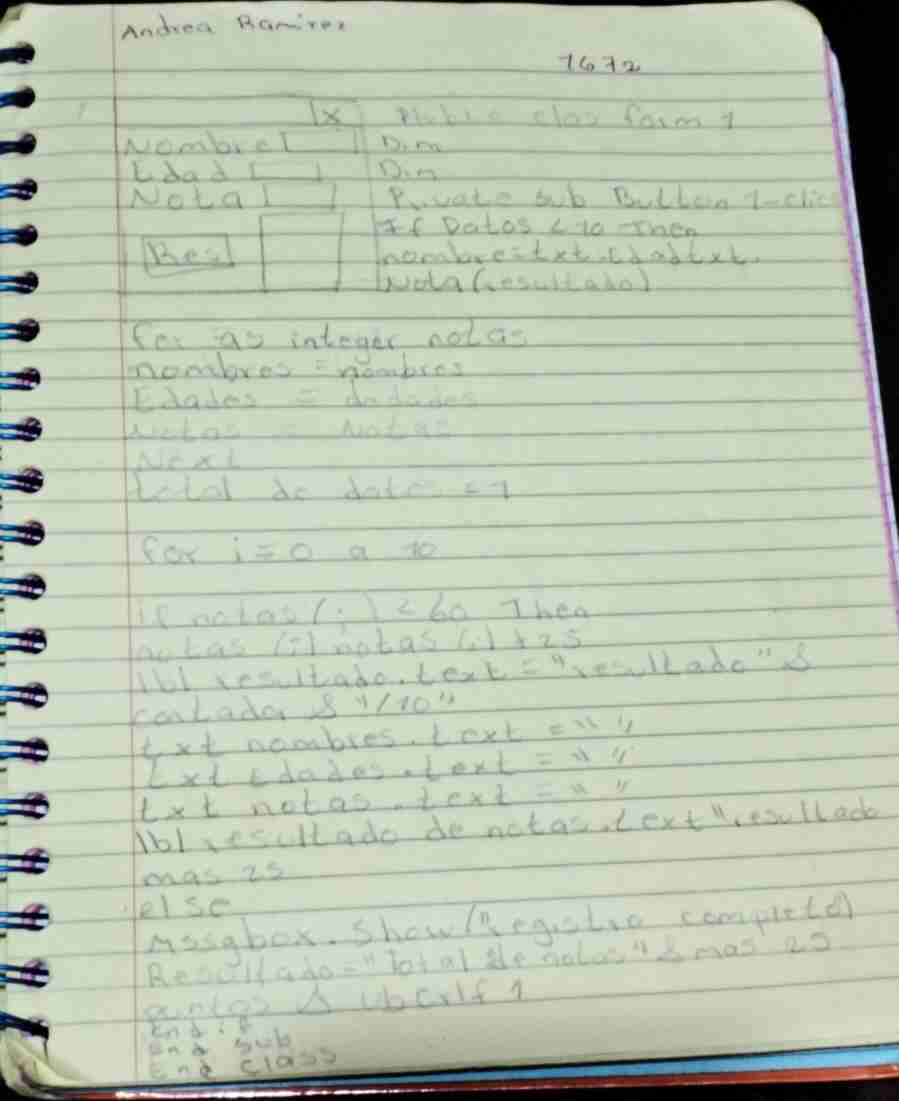 Andrea Ramirez
1672
x
Public clas form 1
Nombre
Dim
Edad
Dim
Nota
Private sub Button 1-clic
If Datos < 10 Then
Res
nombre=txt.Edadtxt.
Nota(resultado)
for as integer notas
nombres = nombres
Edades = dadades
Notas = Notas
Next
total de datos = 1
for i = 0 a 10
if notas (i) < 60 Then
notas (i) notas (i) + 25
lbl resultado.text = "resultado" &
contador & "/10"
txt nombres.text = " "
txt Edades.text = " "
txt notas.text = " "
lbl resultado de notas.text "resultado
mas 25
else
Mssgbox.Show("Registro completo)
Resultado="Total de notas" & mas 25
puntos & Vbcrlf 1
End if
End sub
End class